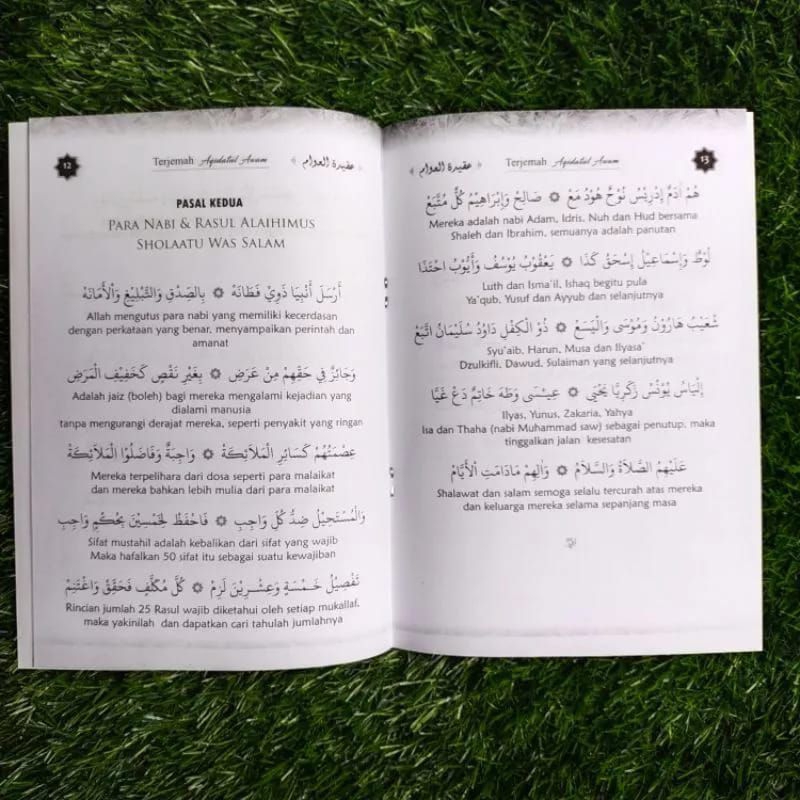 12
Terjemah Aqidatul Awam ﴿ عقيدة العوام ﴾
PASAL KEDUA
PARA NABI & RASUL ALAIHIMUS
SHOLAATU WAS SALAM
أَرْسَلَ أَنْبِيَا ذَوِيْ فَطَانَهْ ۞ بِالصِّدْقِ وَالتَّبْلِيْغِ وَالْأَمَانَهْ
Allah mengutus para nabi yang memiliki kecerdasan
dengan perkataan yang benar, menyampaikan perintah dan
amanat
وَجَائِزٌ فِي حَقِّهِمْ مِنْ عَرَضِ ۞ بِغَيْرِ نَقْصٍ كَخَفِيْفِ الْمَرَضِ
Adalah jaiz (boleh) bagi mereka mengalami kejadian yang
dialami manusia
tanpa mengurangi derajat mereka, seperti penyakit yang ringan
عِصْمَتُهُمْ كَسَائِرِ الْمَلَائِكَةْ ۞ وَاجِبَةٌ وَفَاضَلُوا الْمَلَائِكَةْ
Mereka terpelihara dari dosa seperti para malaikat
dan mereka bahkan lebih mulia dari para malaikat
وَالْمُسْتَحِيْلُ ضِدُّ كُلِّ وَاجِبِ ۞ فَاحْفَظْ لِخَمْسِيْنَ بِحُكْمٍ وَاجِبِ
Sifat mustahil adalah kebalikan dari sifat yang wajib
Maka hafalkan 50 sifat itu sebagai suatu kewajiban
تَفْصِيْلُ خَمْسَةٍ وَعِشْرِيْنَ لَزِمْ ۞ كُلَّ مُكَلَّفٍ فَحَقِّقْ وَاغْتَنِمْ
Rincian jumlah 25 Rasul wajib diketahui oleh setiap mukallaf,
maka yakinilah dan dapatkan cari tahulah jumlahnya
﴿ عقيدة العوام ﴾ Terjemah Aqidatul Awam
13
هُمْ آدَمٌ إِدْرِيْسُ نُوْحٌ هُوْدُ مَعْ ۞ صَالِحْ وَإِبْرَاهِيْمُ كُلٌّ مُتَّبَعْ
Mereka adalah nabi Adam, Idris, Nuh dan Hud bersama
Shaleh dan Ibrahim, semuanya adalah panutan
لُوْطٌ وَإِسْمَاعِيْلُ إِسْحٰقُ كَذَا ۞ يَعْقُوْبُ يُوْسُفُ وَأَيُّوْبُ احْتَذَا
Luth dan Isma'il, Ishaq begitu pula
Ya'qub, Yusuf dan Ayyub dan selanjutnya
شُعَيْبُ هَارُوْنُ وَمُوْسَى وَالْيَسَعْ ۞ ذُو الْكِفْلِ دَاوُدُ سُلَيْمَانُ اتَّبَعْ
Syu'aib, Harun, Musa dan Ilyasa'
Dzulkifli, Dawud, Sulaiman yang selanjutnya
إِلْيَاسُ يُوْنُسْ زَكَرِيَّا يَحْيَى ۞ عِيْسَى وَطَهَ خَاتِمٌ دَعْ غَيَّا
Ilyas, Yunus, Zakaria, Yahya
Isa dan Thaha (nabi Muhammad saw) sebagai penutup, maka
tinggalkan jalan kesesatan
عَلَيْهِمُ الصَّلَاةُ وَالسَّلَامُ ۞ وَآلِهِمْ مَادَامَتِ الْأَيَّامُ
Shalawat dan salam semoga selalu tercurah atas mereka
dan keluarga mereka selama sepanjang masa